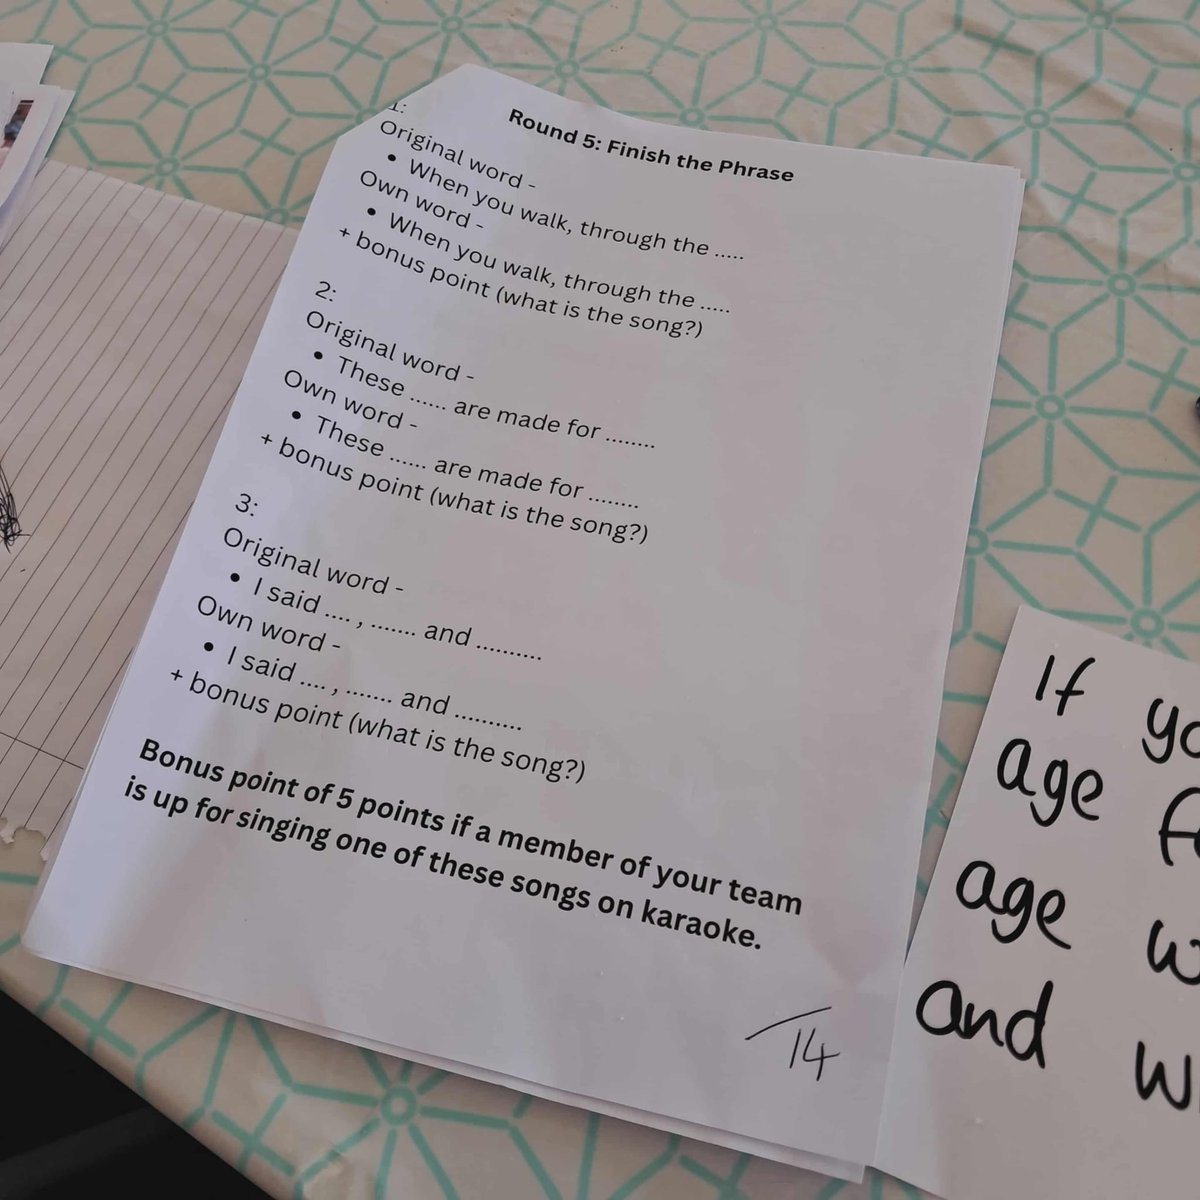 Round 5: Finish the Phrase
1:
Original word -
• When you walk, through the .....
Own word -
• When you walk, through the .....
+ bonus point (what is the song?)
2:
Original word -
• These ...... are made for ........
Own word -
• These ...... are made for ........
+ bonus point (what is the song?)
3:
Original word -
• I said .... , ....... and ...........
Own word -
• I said .... , ....... and ...........
+ bonus point (what is the song?)
Bonus point of 5 points if a member of your team
is up for singing one of these songs on karaoke.
/14
If
age
age
and